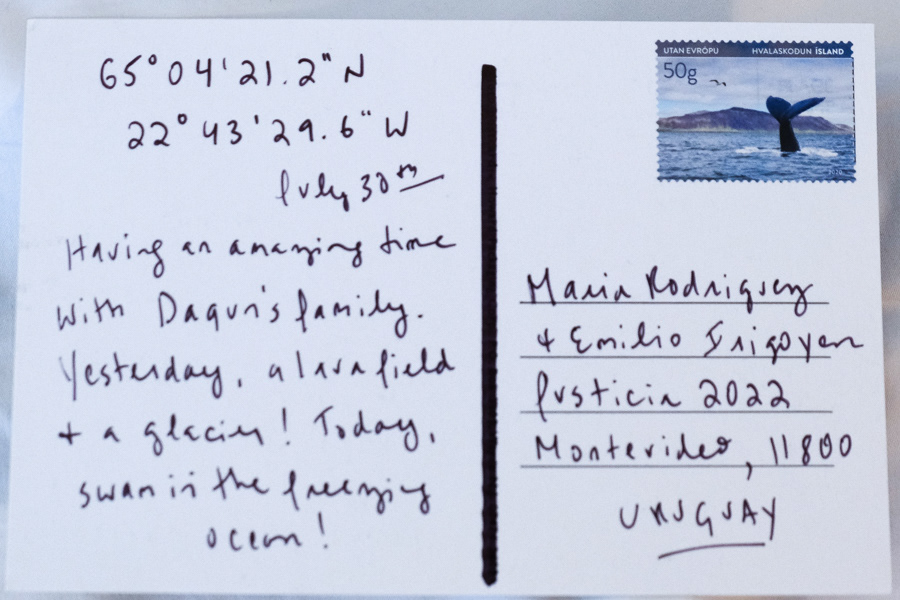 65°04'21.2" N
22°43'29.6" W
July 30th
Having an amazing time
with Dagur's family.
Yesterday, a lava field
+ a glacier! Today,
swam in the freezing
ocean!
UTAN EVRÓPU HVALASKODUN ÍSLAND
50g
Maria Rodriguez
+ Emilio Irigoyen
Justicia 2022
Montevideo, 11800
URUGUAY